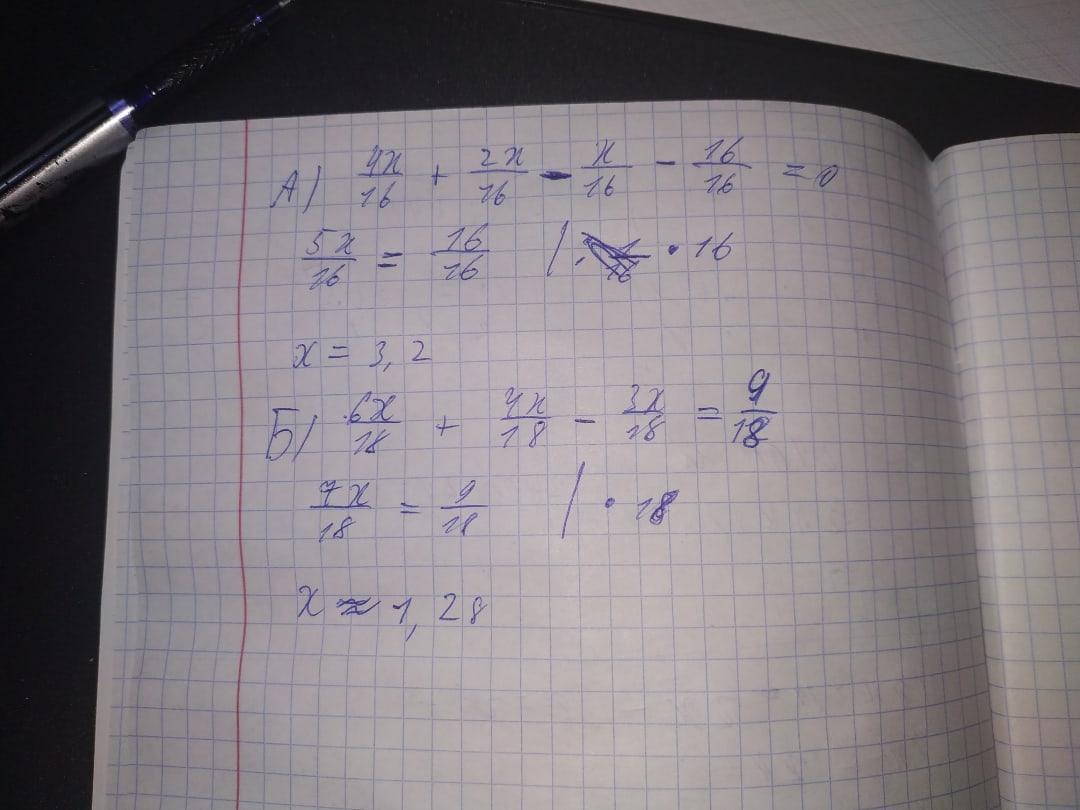 А) 4x/16 + 2x/16 - x/16 - 16/16 = 0
5x/16 = 16/16 | · 16
x = 3,2
Б) 6x/18 + 4x/18 - 3x/18 = 9/18
7x/18 = 9/18 | · 18
x ≈ 1,28